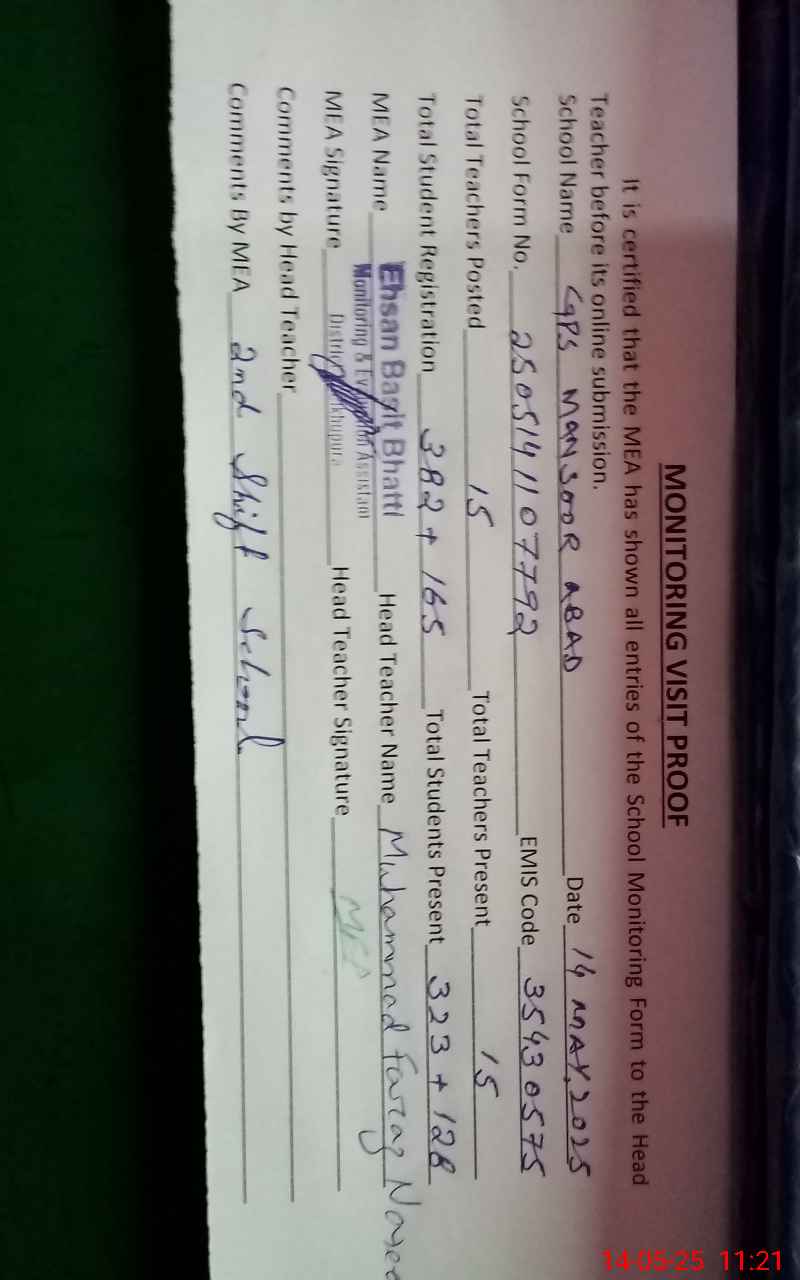 MONITORING VISIT PROOF
It is certified that the MEA has shown all entries of the School Monitoring Form to the Head
Teacher before its online submission.
School Name GPS MANSOOR ABAD Date 14 MAY, 2025
School Form No. 2505141107792 EMIS Code 35430575
Total Teachers Posted 15 Total Teachers Present 15
Total Student Registration 382 + 165 Total Students Present 323 + 128
MEA Name Ehsan Bagit Bhatti Head Teacher Name Muhammad Farzaq
Monitoring & Assistant
MEA Signature Head Teacher Signature
Comments by Head Teacher
Comments By MEA 2nd Shift School
14-05-25 11:21